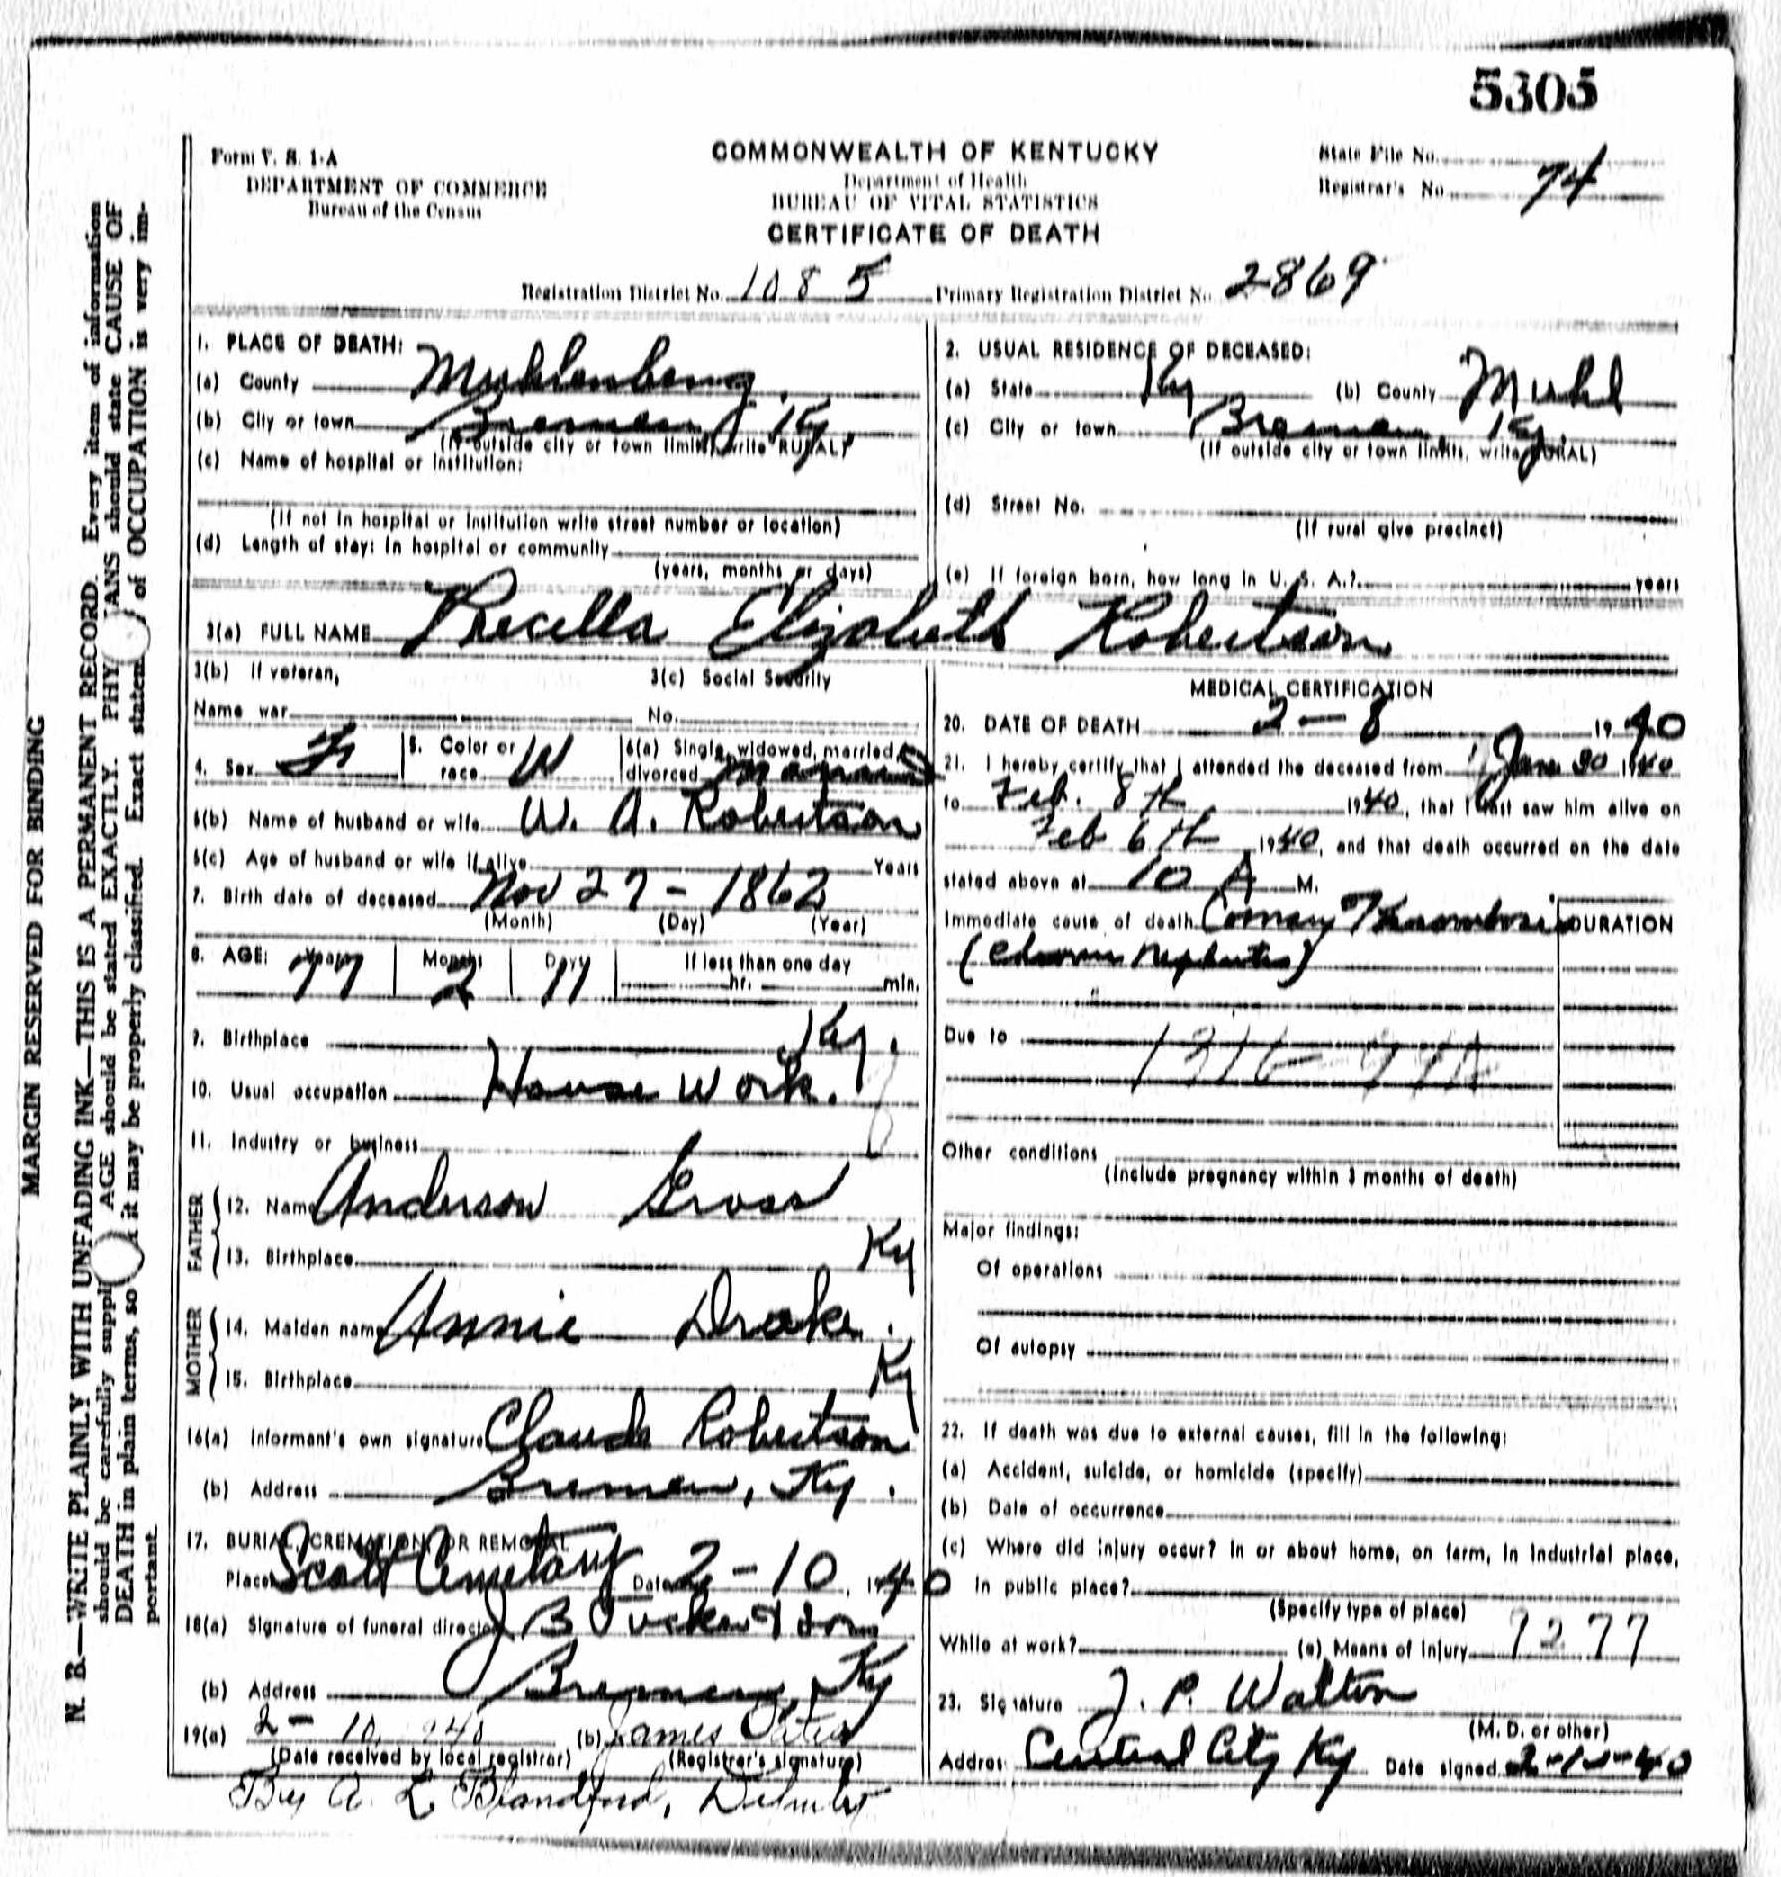 5305
Form V. S. 1-A
DEPARTMENT OF COMMERCE
Bureau of the Census
COMMONWEALTH OF KENTUCKY
Department of Health
BUREAU OF VITAL STATISTICS
CERTIFICATE OF DEATH
State File No.
Registrar's No. 74
Registration District No. 1085 Primary Registration District No. 2869
MARGIN RESERVED FOR BINDING
N. B.—WRITE PLAINLY WITH UNFADING INK—THIS IS A PERMANENT RECORD. Every item of information
should be carefully suppl AGE should be stated EXACTLY. PHY IANS should state CAUSE OF
DEATH in plain terms, so it may be properly classified. Exact statem of OCCUPATION is very im-
portant.
1. PLACE OF DEATH:
(a) County Muhlenberg
(b) City or town Bremen Ky.
(If outside city or town limits, write RURAL)
(c) Name of hospital or institution:
(If not in hospital or institution write street number or location)
(d) Length of stay: In hospital or community
(years, months or days)
2. USUAL RESIDENCE OF DECEASED:
(a) State Ky (b) County Muhl
(c) City or town Bremen Ky.
(If outside city or town limits, write RURAL)
(d) Street No.
(If rural give precinct)
(e) If foreign born, how long in U. S. A.? years
3(a) FULL NAME Precilla Elizabeth Robertson
3(b) If veteran, 3(c) Social Security
Name war No.
4. Sex F 5. Color or race W 6(a) Single, widowed, married, divorced Married
6(b) Name of husband or wife W. A. Robertson
6(c) Age of husband or wife if alive Years
7. Birth date of deceased Nov 27 - 1862
(Month) (Day) (Year)
8. AGE: Years 77 Months 2 Days 11 If less than one day
hr. min.
9. Birthplace Ky.
10. Usual occupation House Work.
11. Industry or business
FATHER
12. Name Anderson Gross
13. Birthplace Ky
MOTHER
14. Maiden name Annie Drake.
15. Birthplace Ky
16(a) Informant's own signature Claude Robertson
(b) Address Bremen, Ky.
17. BURIAL, CREMATION, OR REMOVAL
Place Scott Cemetary Date 2-10, 1940
18(a) Signature of funeral director J B Tucker & Son
(b) Address Bremen, Ky
19(a) 2-10, 940 (b) James
(Date received by local registrar) (Registrar's signature)
By A. L. Blandford,
MEDICAL CERTIFICATION
20. DATE OF DEATH 2-8 1940
21. I hereby certify that I attended the deceased from Jan 30 1940
to Feb. 8th 1940, that I last saw him alive on
Feb 6th 1940, and that death occurred on the date
stated above at 10 A M.
Immediate cause of death Coronary Thrombosis DURATION
(Chronic Nephritis)
Due to
Other conditions
(Include pregnancy within 3 months of death)
Major findings:
Of operations
Of autopsy
22. If death was due to external causes, fill in the following:
(a) Accident, suicide, or homicide (specify)
(b) Date of occurrence
(c) Where did injury occur? In or about home, on farm, in industrial place,
in public place?
(Specify type of place)
While at work? (e) Means of injury 7277
23. Signature J. P. Walton
(M. D. or other)
Address Central City Ky Date signed